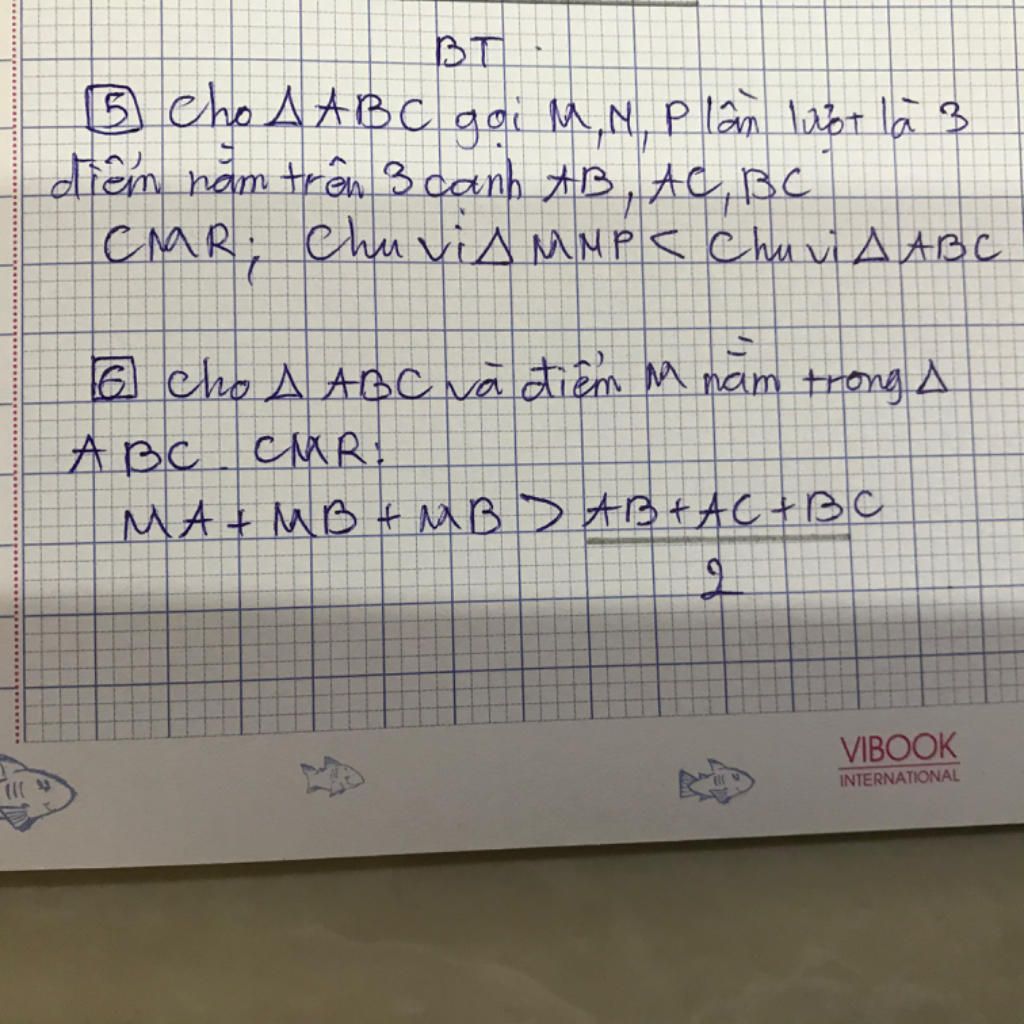 BT.
5 Cho Δ ABC gọi M, N, P lần lượt là 3
điểm nằm trên 3 cạnh AB, AC, BC
CMR; Chu vi Δ MNP < Chu vi Δ ABC
6 Cho Δ ABC và điểm M nằm trong Δ
ABC. CMR:
MA + MB + MB > AB + AC + BC
2
VIBOOK
INTERNATIONAL